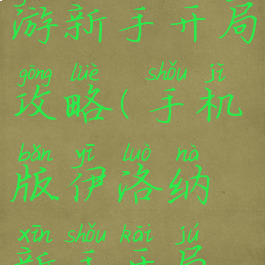 游新手开局
gōng lüè shǒu jī
攻略(手机
bǎn yī luò nà
版伊洛纳
xīn shǒu kāi jú
新手开局